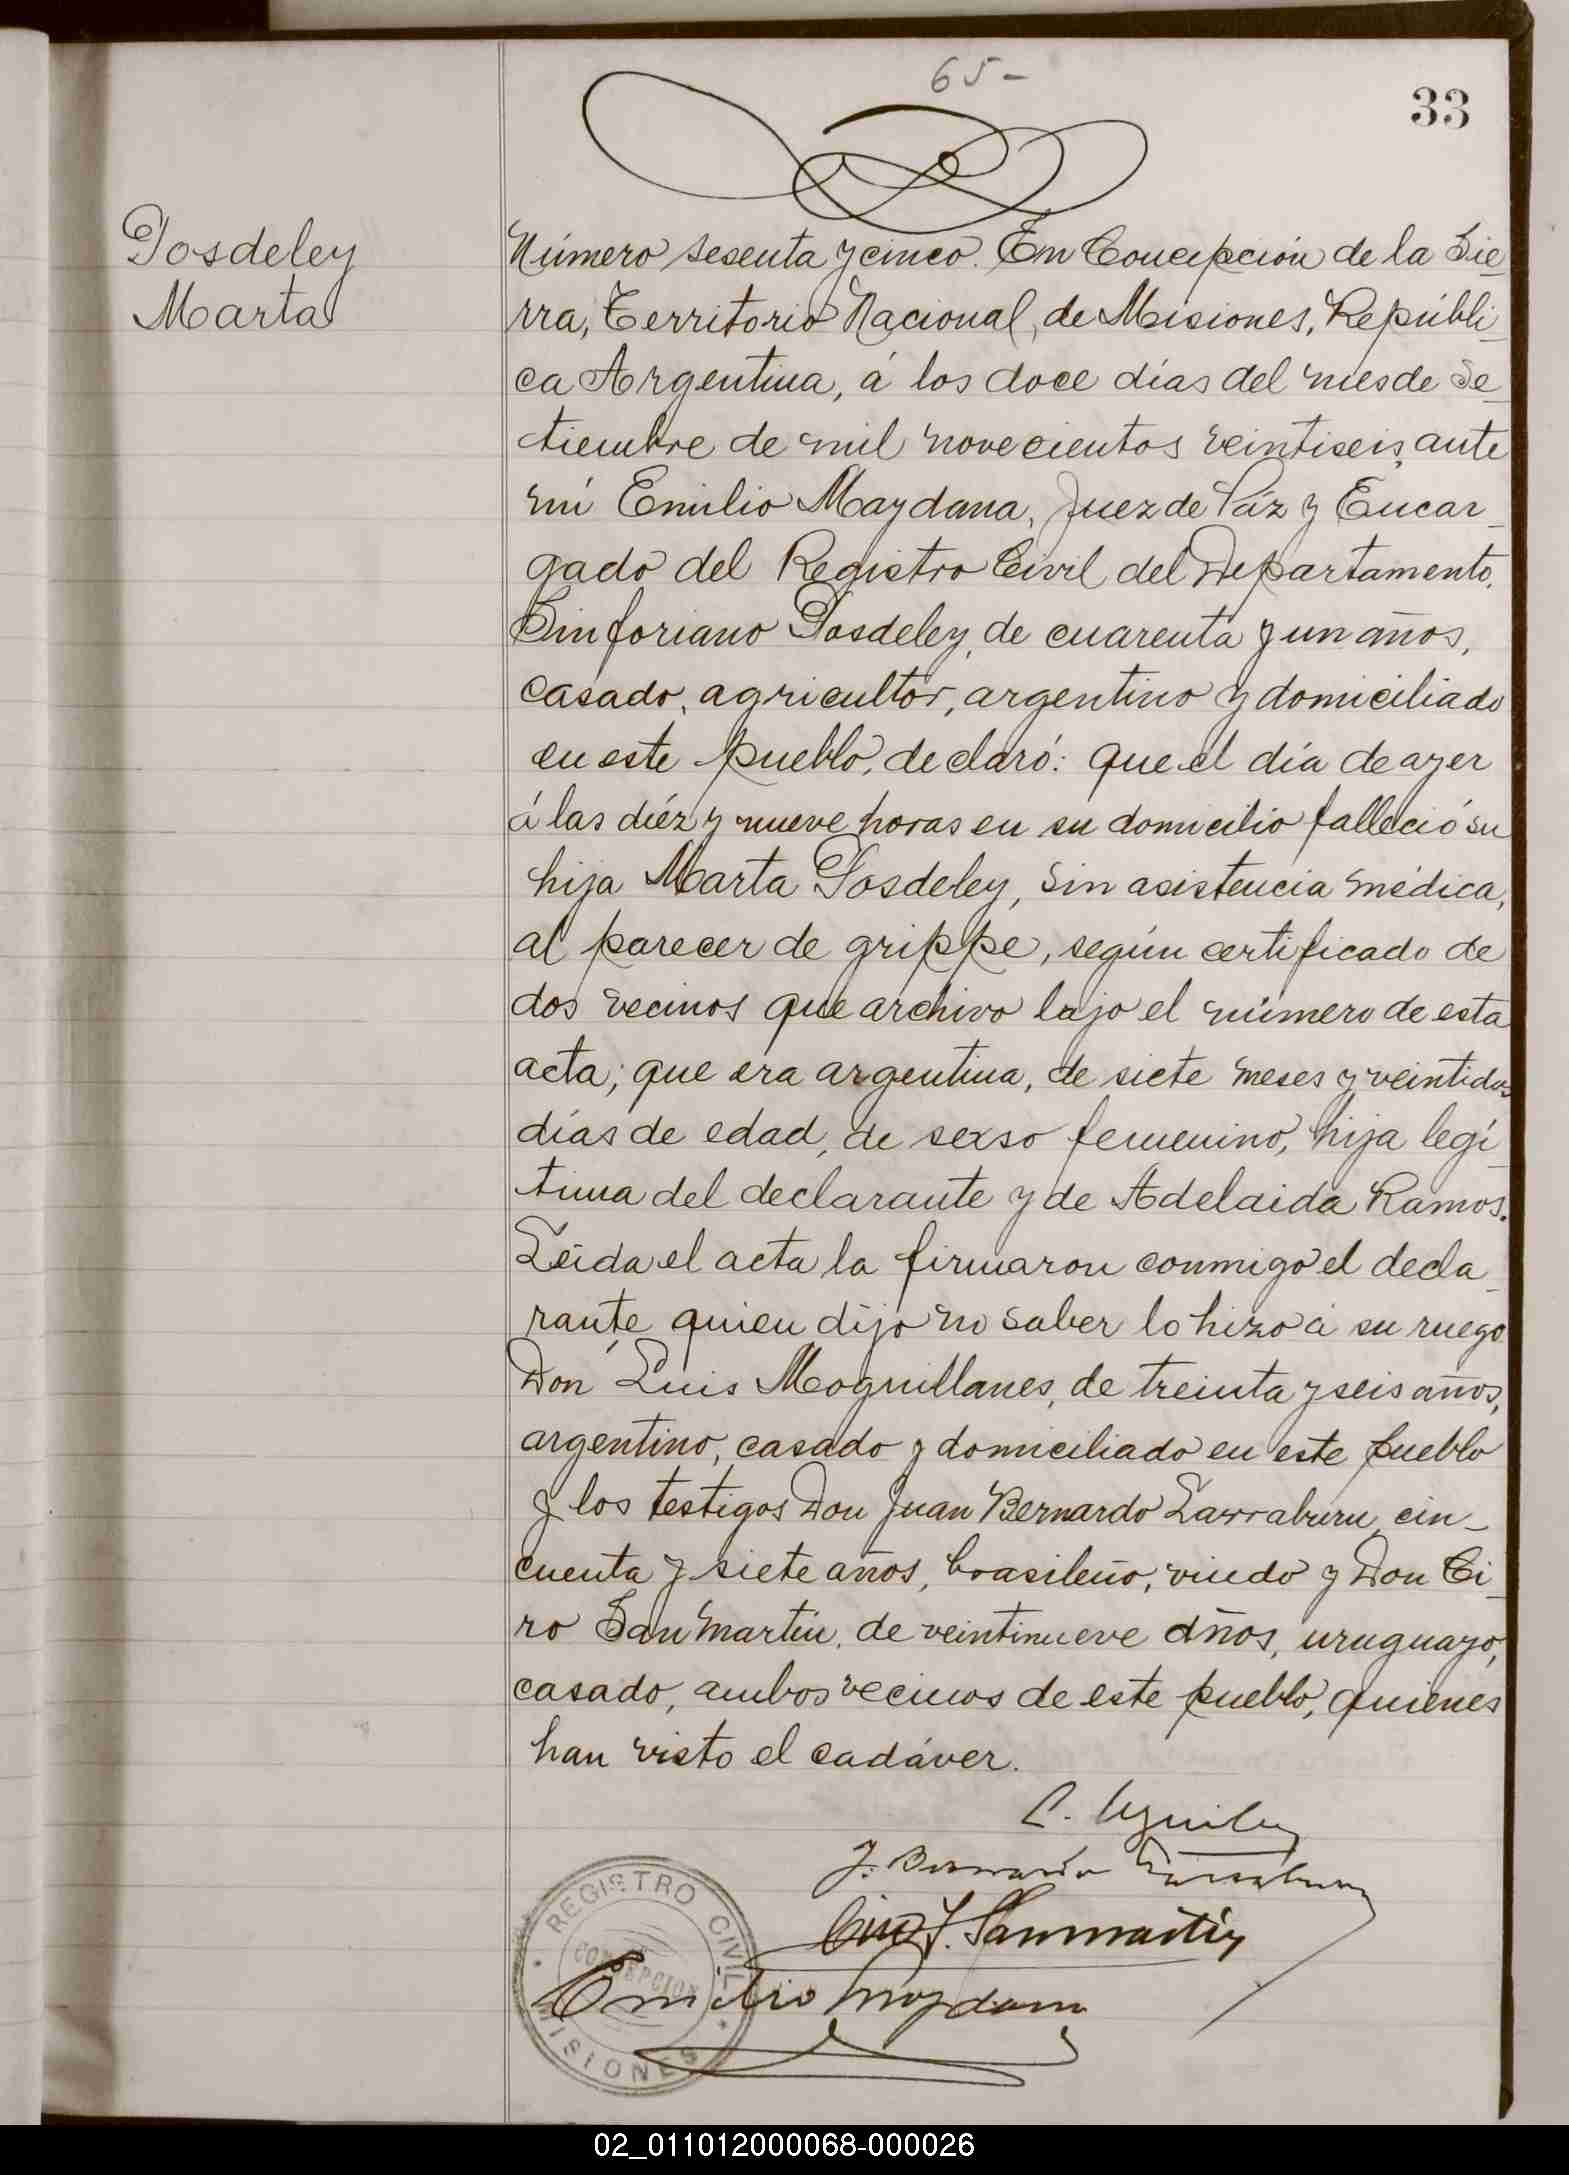 65-
33
Posdeley
Marta
Número sesenta y cinco. En Concepción de la Sie
rra, Territorio Nacional de Misiones, Repúbli
ca Argentina, á los doce días del mes de Se
tiembre de mil novecientos veintiseis, ante
mí Emilio Maydana, Juez de Páz y Encar
gado del Registro Civil del Departamento,
Sinforiano Posdeley, de cuarenta y un años,
casado, agricultor, argentino y domiciliado
en este pueblo, declaró: que el día de ayer
á las diéz y nueve horas en su domicilio falleció su
hija Marta Posdeley, sin asistencia médica,
al parecer de grippe, según certificado de
dos vecinos que archivo bajo el número de esta
acta; que era argentina, de siete meses y veintidos
días de edad, de sexso femenino, hija legí
tima del declarante y de Adelaida Ramos.
Leída el acta la firmaron conmigo el decla
rante, quien dijo no saber lo hizo á su ruego
Don Luis Moguillanes, de treinta y seis años,
argentino, casado y domiciliado en este pueblo
y los testigos Don Juan Bernardo Larraburu, cin-
cuenta y siete años, brasileño, viudo y Don Ci
ro San Martin, de veintinueve años, uruguayo,
casado, ambos vecinos de este pueblo, quienes
han visto el cadáver.
J. Bernardo Larraburu
Ciro J. Sanmartin
Emilio Maydana
REGISTRO CIVIL
CONCEPCION
MISIONES
02_011012000068-000026